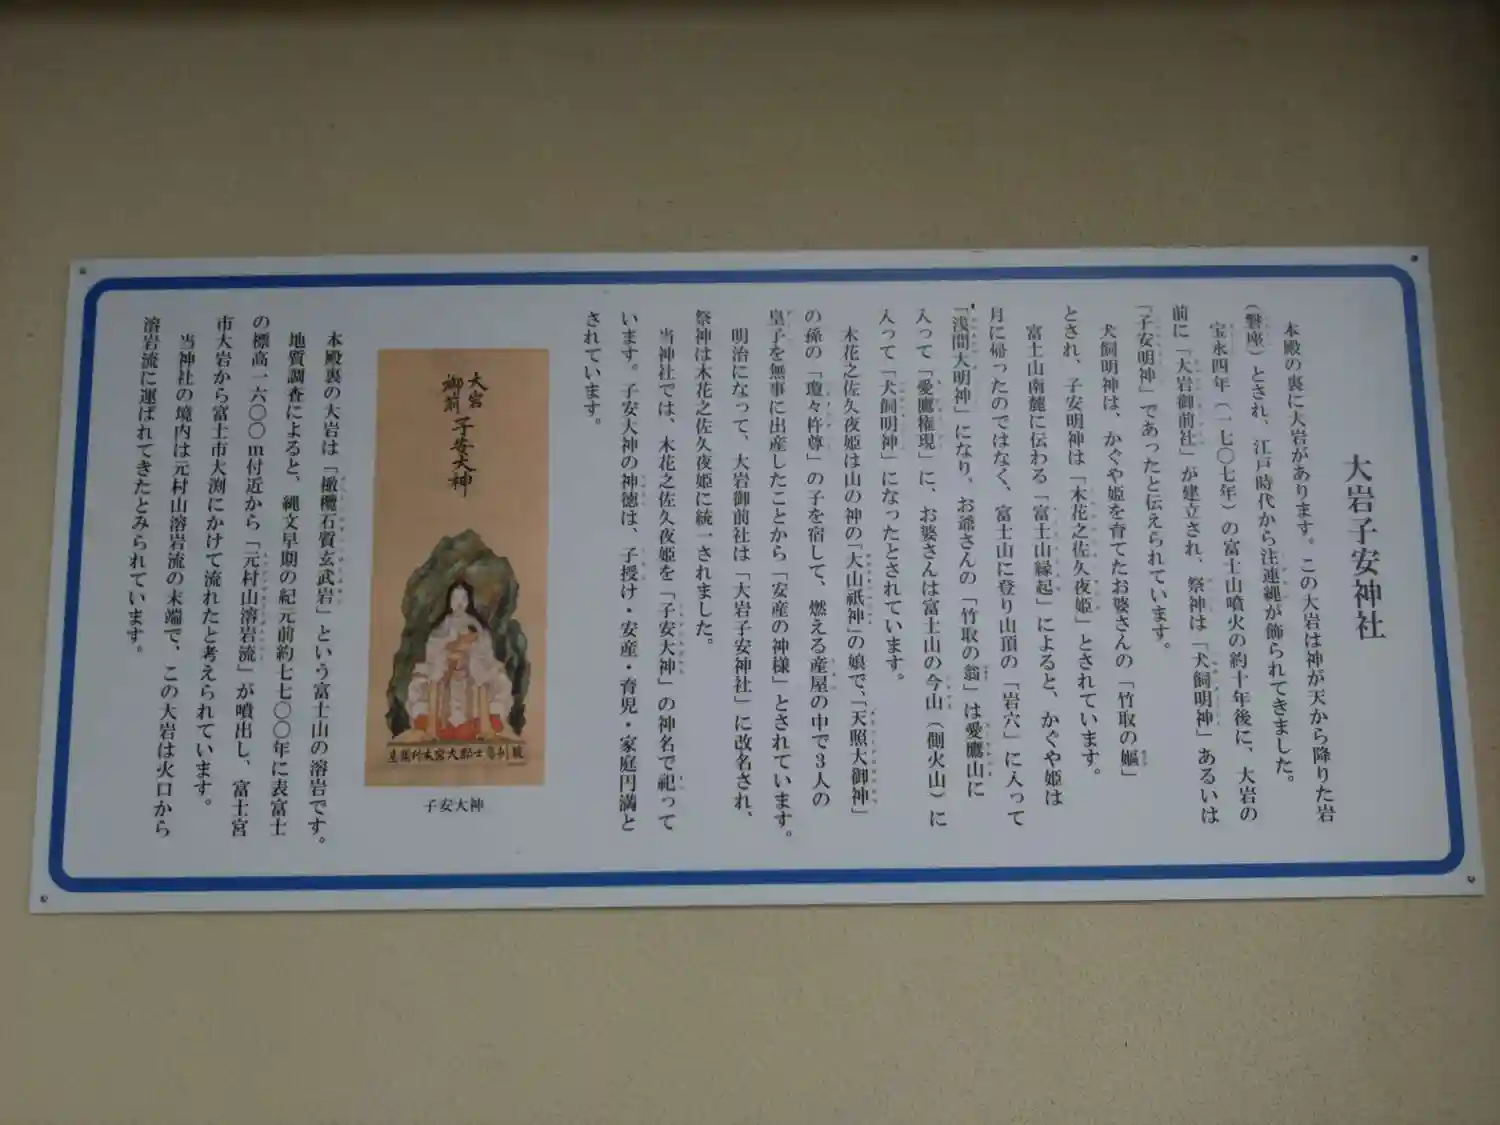 大岩子安神社
本殿の裏に大岩があります。この大岩は神が天から降りた岩
(磐座)とされ、江戸時代から注連縄が飾られてきました。
宝永四年(一七〇七年)の富士山噴火の約十年後に、大岩の
前に「大岩御前社」が建立され、祭神は「犬飼明神」あるいは
「子安明神」であったと伝えられています。
犬飼明神は、かぐや姫を育てたお婆さんの「竹取の嫗」
とされ、子安明神は「木花之佐久夜姫」とされています。
富士山南麓に伝わる「富士山縁起」によると、かぐや姫は
月に帰ったのではなく、富士山に登り山頂の「岩穴」に入って
「浅間大明神」になり、お爺さんの「竹取の翁」は愛鷹山に
入って「愛鷹権現」に、お婆さんは富士山の今山(側火山)に
入って「犬飼明神」になったとされています。
木花之佐久夜姫は山の神の「大山祇神」の娘で、「天照大御神」
の孫の「瓊々杵尊」の子を宿して、燃える産屋の中で3人の
皇子を無事に出産したことから「安産の神様」とされています。
明治になって、大岩御前社は「大岩子安神社」に改名され、
祭神は木花之佐久夜姫に統一されました。
当神社では、木花之佐久夜姫を「子安大神」の神名で祀って
います。子安大神の神徳は、子授け・安産・育児・家庭円満と
されています。
大宮
御前
子安大神
子安大神
本殿裏の大岩は「橄欖石質玄武岩」という富士山の溶岩です。
地質調査によると、縄文早期の紀元前約七七〇〇年に表富士
の標高一六〇〇m付近から「元村山溶岩流」が噴出し、富士宮
市大岩から富士市大渕にかけて流れたと考えられています。
当神社の境内は元村山溶岩流の末端で、この大岩は火口から
溶岩流に運ばれてきたとみられています。